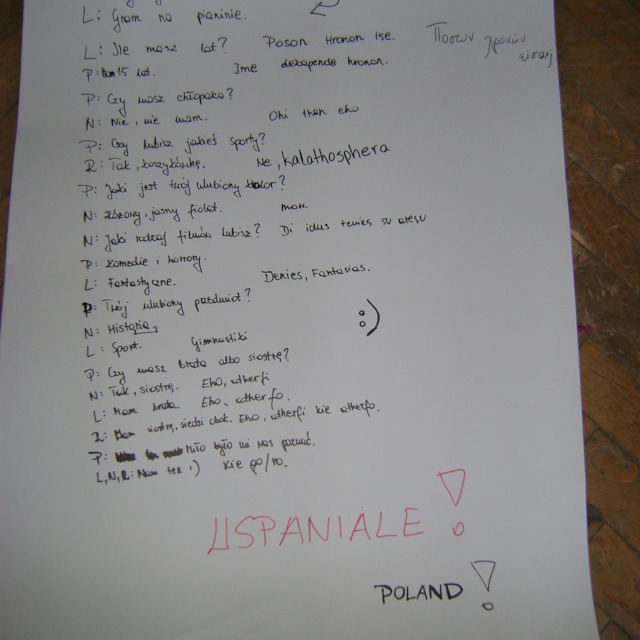 L: Gram na pianinie.
L: Ile masz lat? Poson Hronon ise. Ποσων χρονών είσαι
P: 15 lat. Ime dekapende hronon.
P: Czy masz chłopaka?
N: Nie, nie mam. Ohi then eho
P: Czy lubisz jakieś sporty?
R: Tak, koszykówkę. Ne, kalathosphera
P: Jaki jest twój ulubiony kolor?
N: Różowy, jasny fiolet. mov.
N: Jaki rodzaj filmów lubisz? Di idus tenies su aresu
P: Komedie i horrory.
L: Fantastyczne. Denies, Fantasias.
P: Twój ulubiony przedmiot?
N: Historia,
L: Sport. Gimnastiki :)
P: Czy masz brata albo siostrę?
N: Tak, siostrę. Eho, atherfi
L: Mam brata Eho, atherfo.
R: Mam siostrę, siedzi obok. Eho, atherfi kie atherfo.
P: Miło było mi was poznać.
L,N,R: Nam też :) Kie go/ro.
USPANIALE!
POLAND!